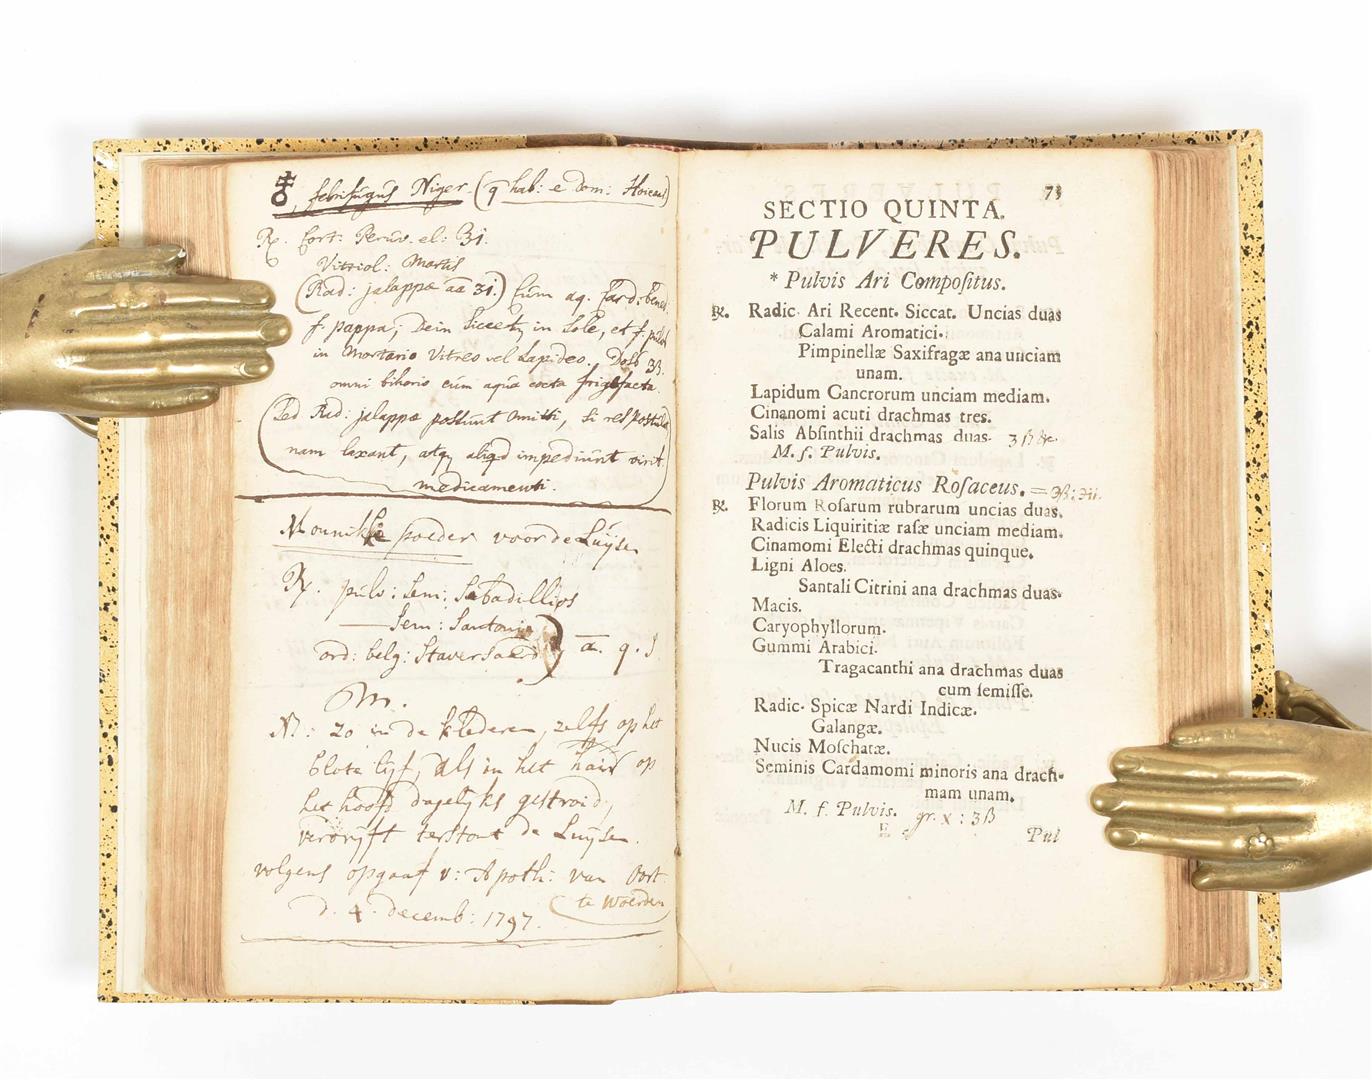 febrifugus Niger (q hab: e Dom:
℞. Cort: Peruv. el: ℥i.
Vitriol: Martis
(Rad: jalappæ aa ʒi.) Cum aq. Card: bened
f. pappa, Dein siccetr in Sole, et f. pulv
in Mortario Vitreo vel Lapideo. Dosis
omni bihorio cum aqua cocta frigefacta.
(Sed Rad: jalappæ possunt omitti, si res postula
nam laxant, atq; aliqd impediunt virt.
medicamenti.
poeder voor de Luijsen
℞. pulv: Sem: Sabadillios
Sem: Santonic
ord: belg: Staversaed a͞a. q. S.
M.
N: Zo in de klederen, zelfs op het
blote lijf, als in het hair op
het hoofd dagelijks gestroid,
verdrijft terstont de Luijsen.
volgens opgaaf v: Apoth: van Oort
te Woerden
d. 4. decemb: 1797.
73
SECTIO QUINTA.
PULVERES.
* Pulvis Ari Compoſitus.
℞. Radic. Ari Recent. Siccat. Uncias duas
Calami Aromatici.
Pimpinellæ Saxifragæ ana unciam
unam.
Lapidum Cancrorum unciam mediam.
Cinanomi acuti drachmas tres.
Salis Abſinthii drachmas duas. ʒß &c.
M. f. Pulvis.
Pulvis Aromaticus Roſaceus. = ℈ß: ʒii.
℞. Florum Rosarum rubrarum uncias duas.
Radicis Liquiritiæ raſæ unciam mediam.
Cinamomi Electi drachmas quinque.
Ligni Aloes.
Santali Citrini ana drachmas duas.
Macis.
Caryophyllorum.
Gummi Arabici.
Tragacanthi ana drachmas duas
cum ſemiſſe.
Radic. Spicæ Nardi Indicæ.
Galangæ.
Nucis Moſchatæ.
Seminis Cardamomi minoris ana drach-
mam unam.
M. f. Pulvis. gr. x : ʒß
E
Pul